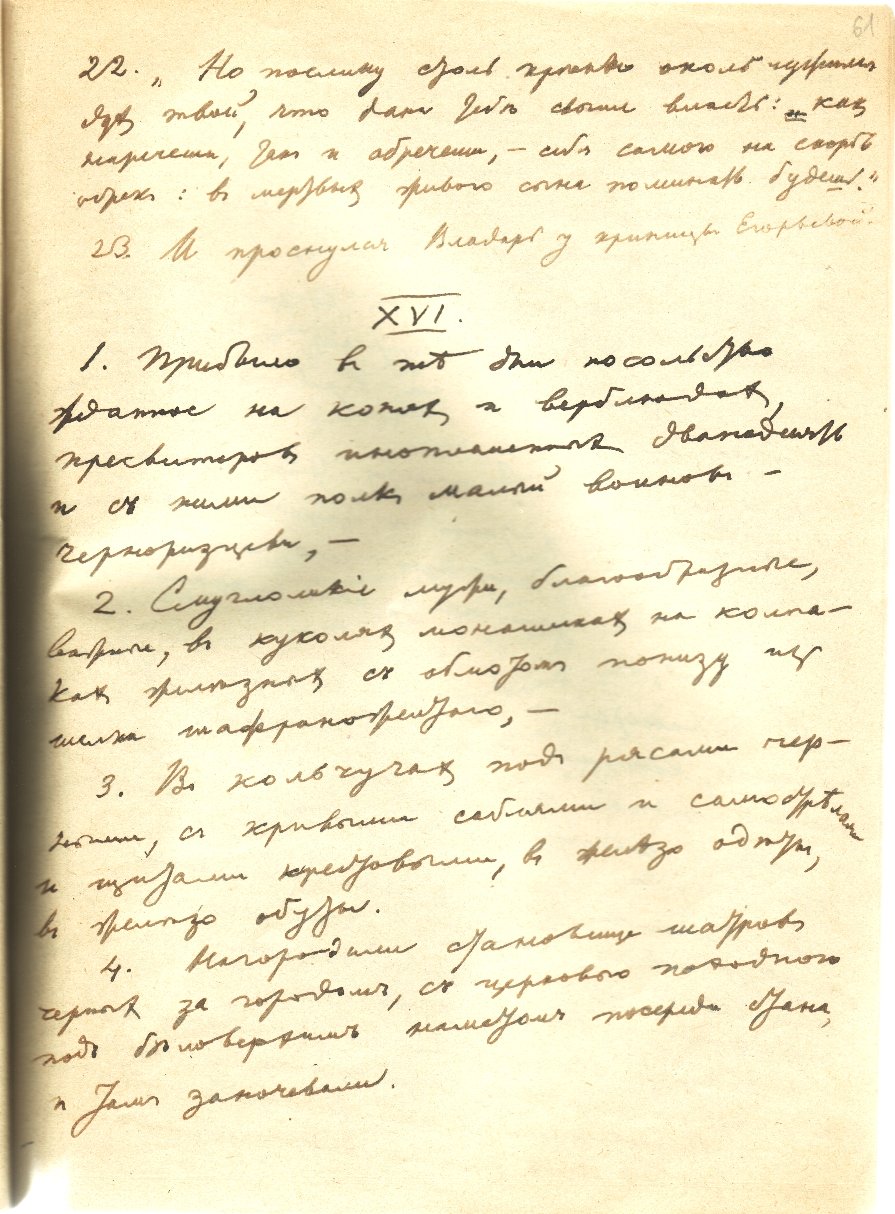 61
22. „Но послику столь крѣпко около
духъ твой, что дана тебѣ свыше власть: „какъ
наречеши, такъ и обречеши, – себя самого на скорбь
обрекъ: въ мертвыхъ живого сына поминать будешь."
23. И проснулся Владарь у криницы Егорьевой.
XVI.
1. Прибыло въ тѣ дни посольство
жданное на коняхъ и верблюдахъ,
пресвитеровъ иноплеменныхъ двѣнадцать
и съ ними полкъ малый воиновъ –
черноризцевъ, –
2. Смуглоликіе мужи, благообразные,
въ куколяхъ монашескихъ на колпа-
кахъ желѣзныхъ съ обмотомъ понизу изъ
шелка шафраножелтаго, –
3. Въ кольчугахъ подъ рясами чер-
ными, съ кривыми саблями и самострѣлами
и щитами крестовыми, въ желѣзо одѣты,
въ желѣзо обуты.
4. Нагородили становище шатровъ
черныхъ за городомъ, съ церковью походною
подъ бѣловерхимъ наметомъ посреди стана,
и тамъ заночевали.